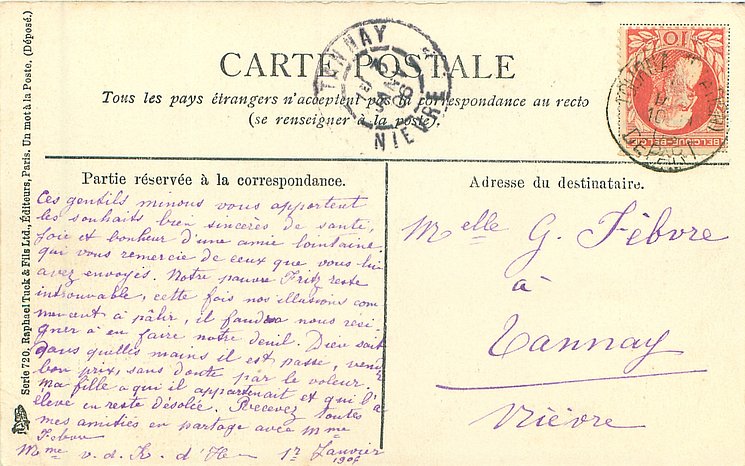 CARTE POSTALE
Tous les pays étrangers n'acceptent pas la correspondance au recto
(se renseigner à la poste)
TANNAY
NIÈVRE
10
BELGIQUE-BELGIË
DEPART
Serie 720, Raphael Tuck & Fils Ltd., Éditeurs, Paris. Un mot à la Poste, (Déposé.)
Partie réservée à la correspondance.
Ces gentils minous vous apportent
les souhaits bien sincères de santé,
joie et bonheur d'une amie lointaine
qui vous remercie de ceux que vous lui
avez envoyés. Notre pauvre Fritz reste
introuvable, cette fois nos illusions com
mencent à pâlir, il faudra nous rési-
gner à en faire notre deuil. Dieu sait
dans quelles mains il est passé, vendu
bon prix, sans doute par le voleur.
Ma fille à qui il appartenait et qui l'a
élevé en reste désolée. Recevez toutes
mes amitiés en partage avec Mme
Febvre
Mme v. d. K. d'H 1r Janvier
Adresse du destinataire.
Melle G. Fèbvre
à
Tannay
Nièvre